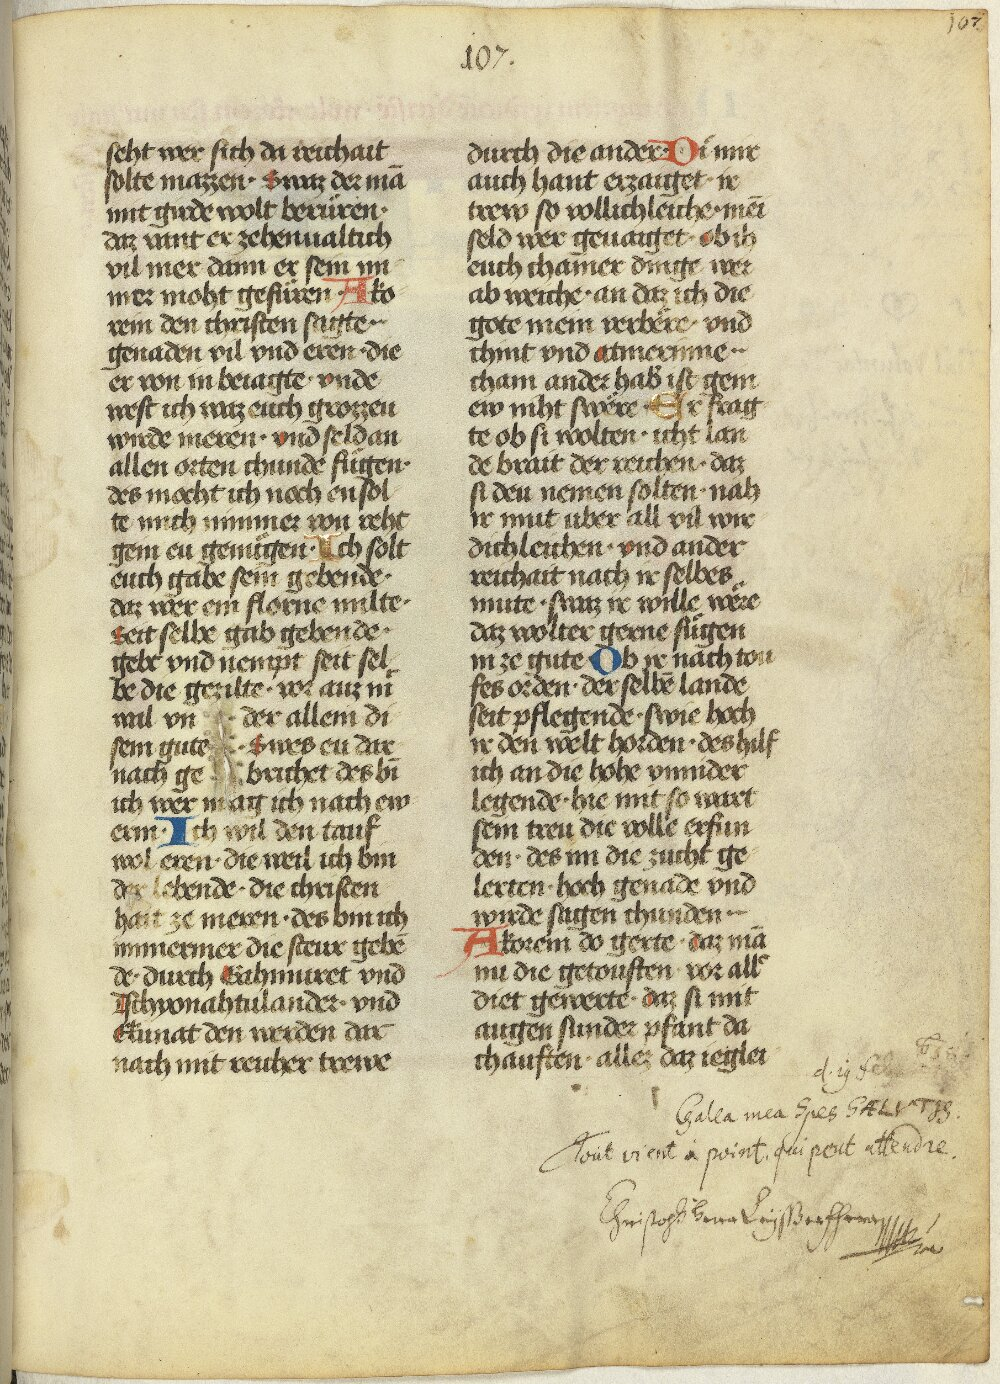 107
107.
seht wer sich da reichait
solte mazzen· Swaz der mā
mit girde wolt berüren·
daz vānt er zehenualtich
vil mer dann er sein im
mer moht gefüren· Ako
rein den christen sagte··
genaden vil vnd eren· die
er von in beiagte· vnde
west ich waz euch grozzen
wirde meren· vnd seld an
allen orten chunde fügen·
des mocht ich noch en sol
te mich nimmer von reht
gein eu genügen· Ich solt
euch gabe sein gebende·
daz wer ein florne milte·
seit selbe gab gebende·
gebt vnd nempt seit sel
be die gezilte· vor auz ni
wil vn der allein di
sem gute · Swes eu dar
nach ge brichet des bī
ich wer mag ich nach ew
erm· Ich wil den tauf
wol eren· die weil ich bin
der lebende· die christen
hait ze meren· des bin ich
immermer die steur gebē
de· durch Gahmuret vnd
Tschyonahtulander· vnd
Ekunat den werden dar
nach mit reicher trewe
durch die ander· Di mir
auch hant erzaiget· ir
trew so vollichleiche· mei
seld wer geuaiget· ob ih
euch chainer dinge wer
ab weiche· an daz ich die
gote mein verbere· vnd
chint vnd atmerinne··
cham ander hab ist gein
ew niht swere· Er frag
te ob si wolten· icht lan
de brait der reichen· daz
si deu nemen solten· nah
ir mut uber all vil wir
dichleichen· vnd ander
reichait nach ir selbes
mute· swaz ir wille were
daz wolter gerne fügen
in ze gute Ob ir nach tou
fes orden· der selbē lande
seit pflegende· swie hoch
ir den welt horden· des hilf
ich an die hohe vnnider
legende· hie mit so wart
sein treu die volle erfun
den· des im die zucht ge
lerten· hoch genade vnd
wirde sagen chunden··
Akorein do gerte· daz mā
nu die getouften vor all
diet gewerte· daz si mit
augen sunder pfant da
chauften· allez daz ieglei
Galea mea Spes SALVATIS.
Tout vient à point, qui peut attendre.